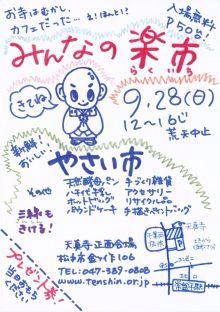 お寺はむかし、
カフェだった…
え！ほんと!?
入場無料
P50台!
みんなの楽市
らくいち
きてね
9.28(日)
12～16じ
荒天中止
新鮮
おいしい!
やさい市
その他
天然酵母パン
ハチミツ
ホットドッグ
パウンドケーキ
手づくり雑貨
アクセサリー
リサイクル品
手描きペインティング
三味も
きける!
プレゼント券!
当日お持ち
ください
天真寺・正面会場
松戸市金ケ作106
TEL:047-389-0808
www.tenshin.or.jp
天真寺
常盤平駅